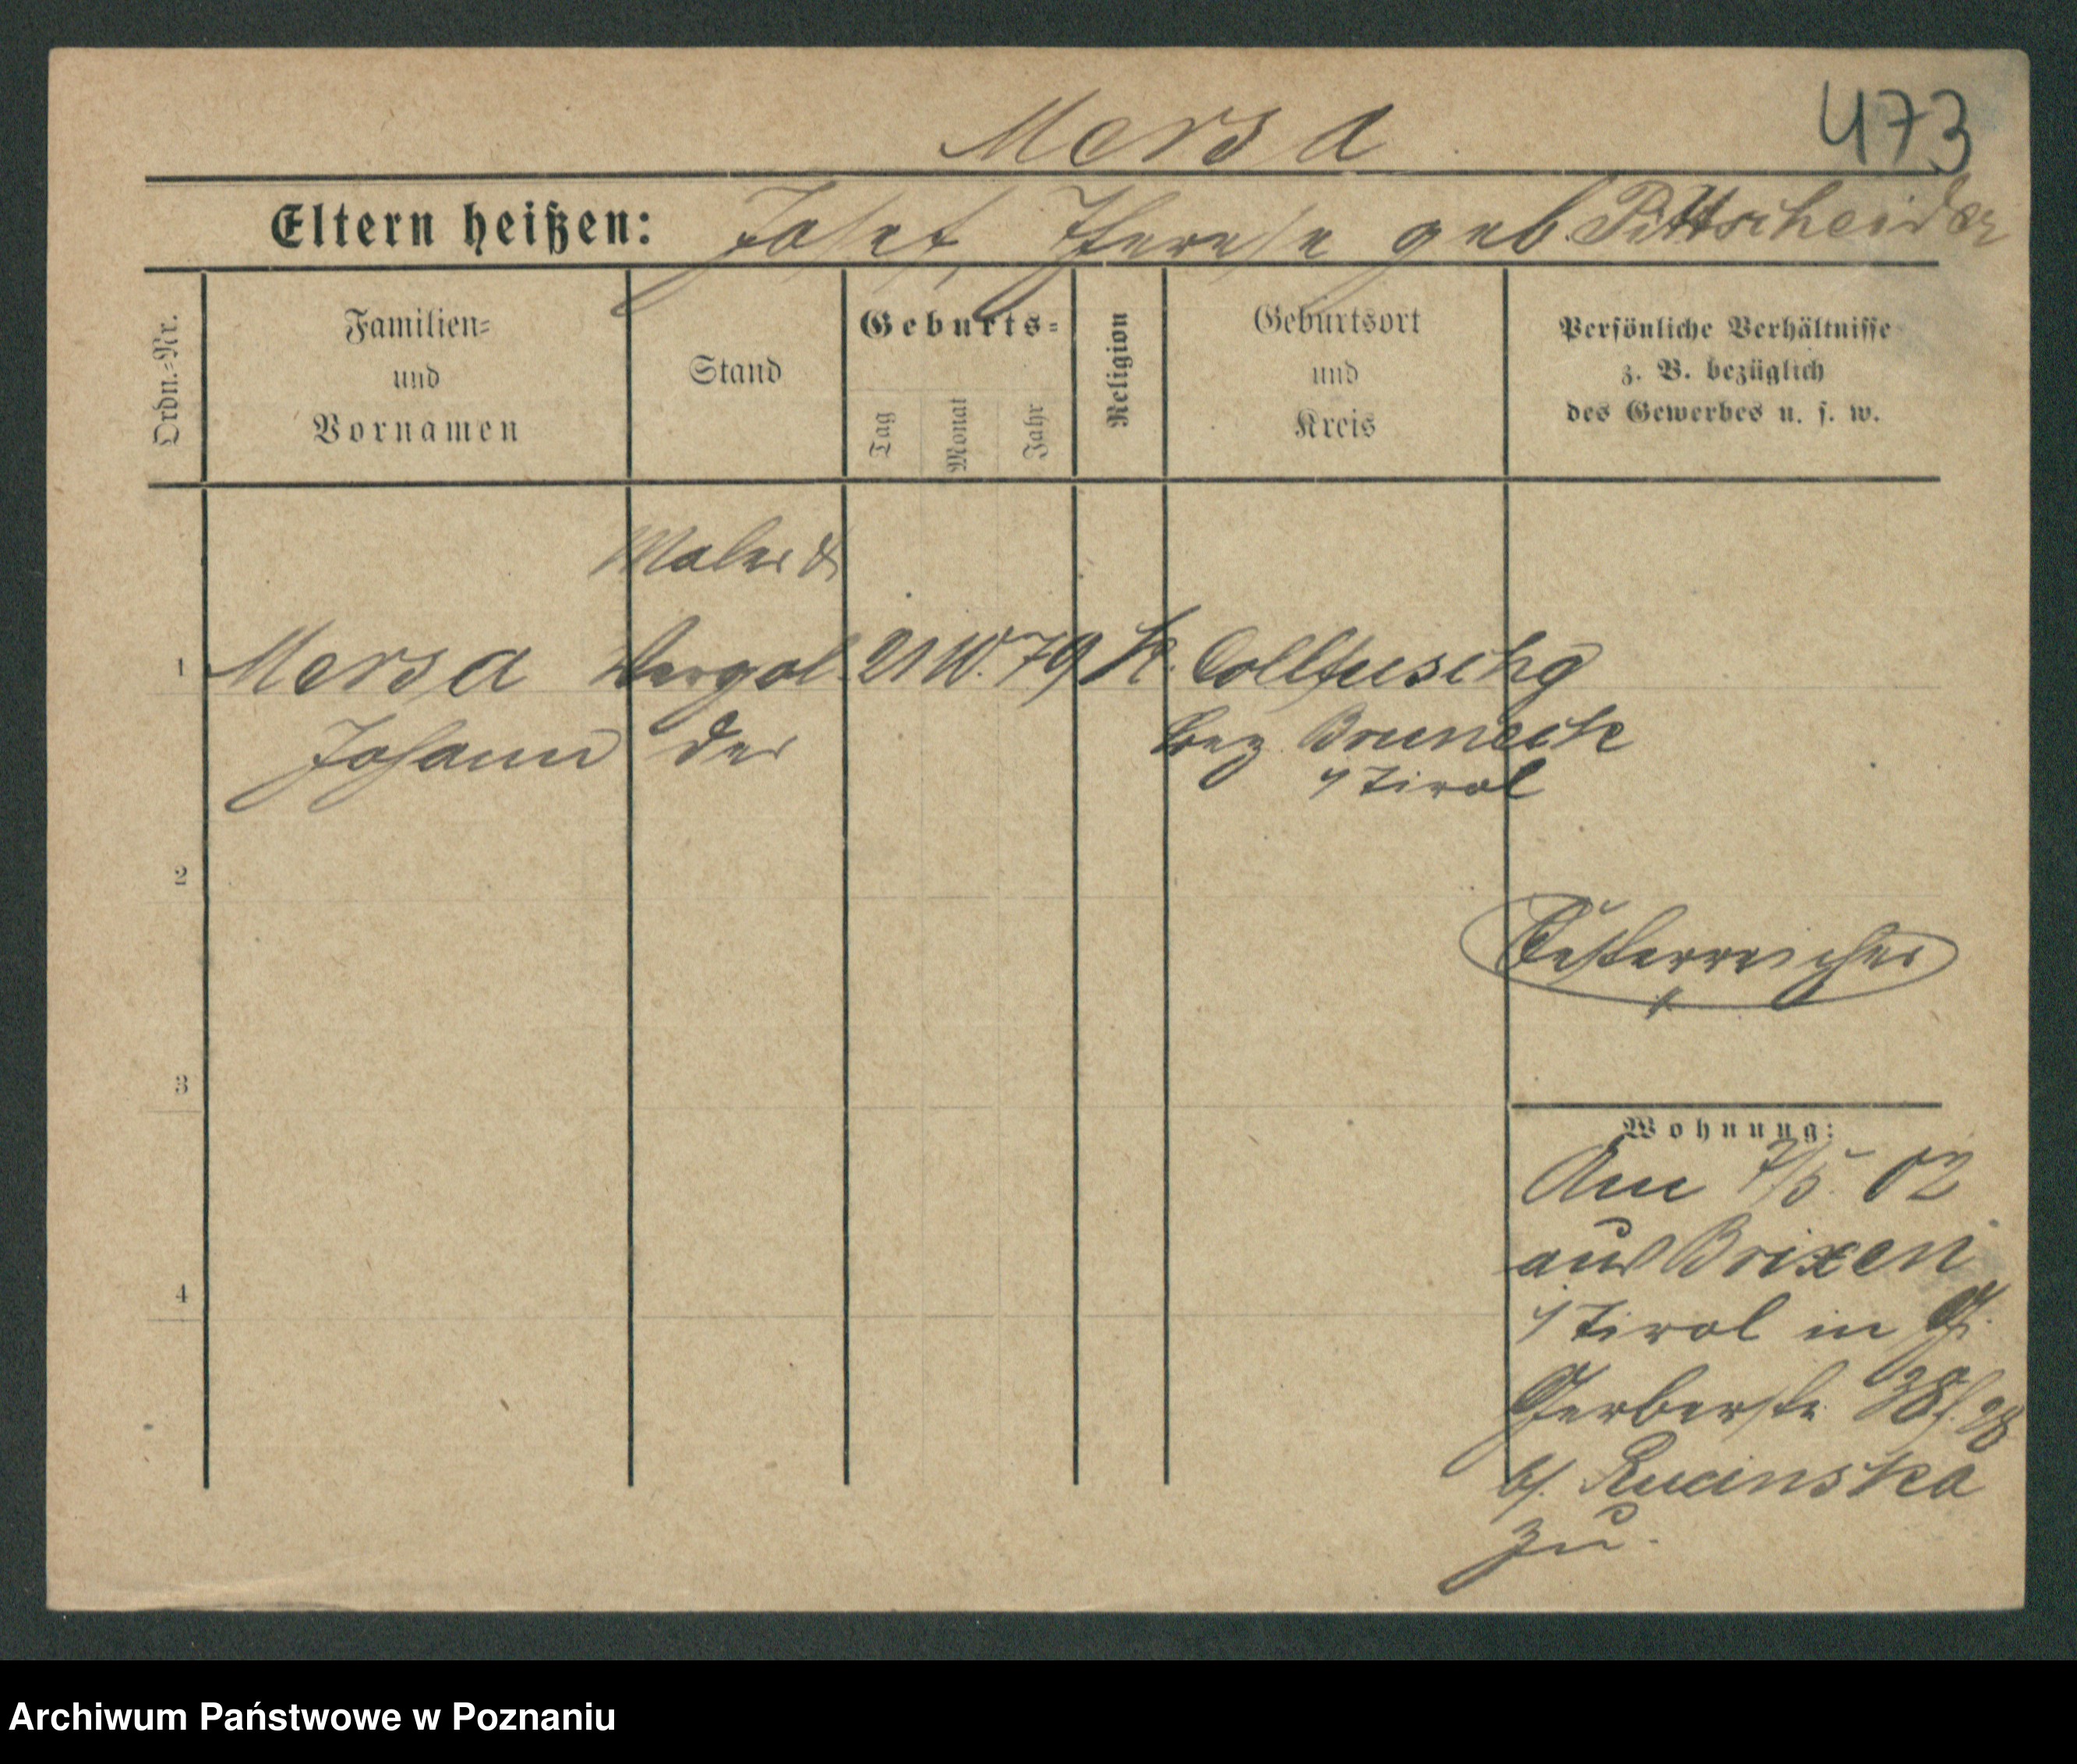 Mersa
473
Eltern heißen: Josef, Therese geb. Pittscheider
Ordn.-Nr.
Familien-
und
Vornamen
Stand
Geburts-
Tag
Monat
Jahr
Religion
Geburtsort
und
Kreis
Persönliche Verhältnisse
z. B. bezüglich
des Gewerbes u. s. w.
Maler &
1 Mersa Vergol 21 10. 79 K. Collfuschg
Johann der bez Bruneck
i/Tirol
2
Oesterreicher
3
Wohnung:
Am 7/5. 02
aus Brixen
4
i/Tirol in G.
Gerberstr. 38
b/. Rucinska
zu.
Archiwum Państwowe w Poznaniu